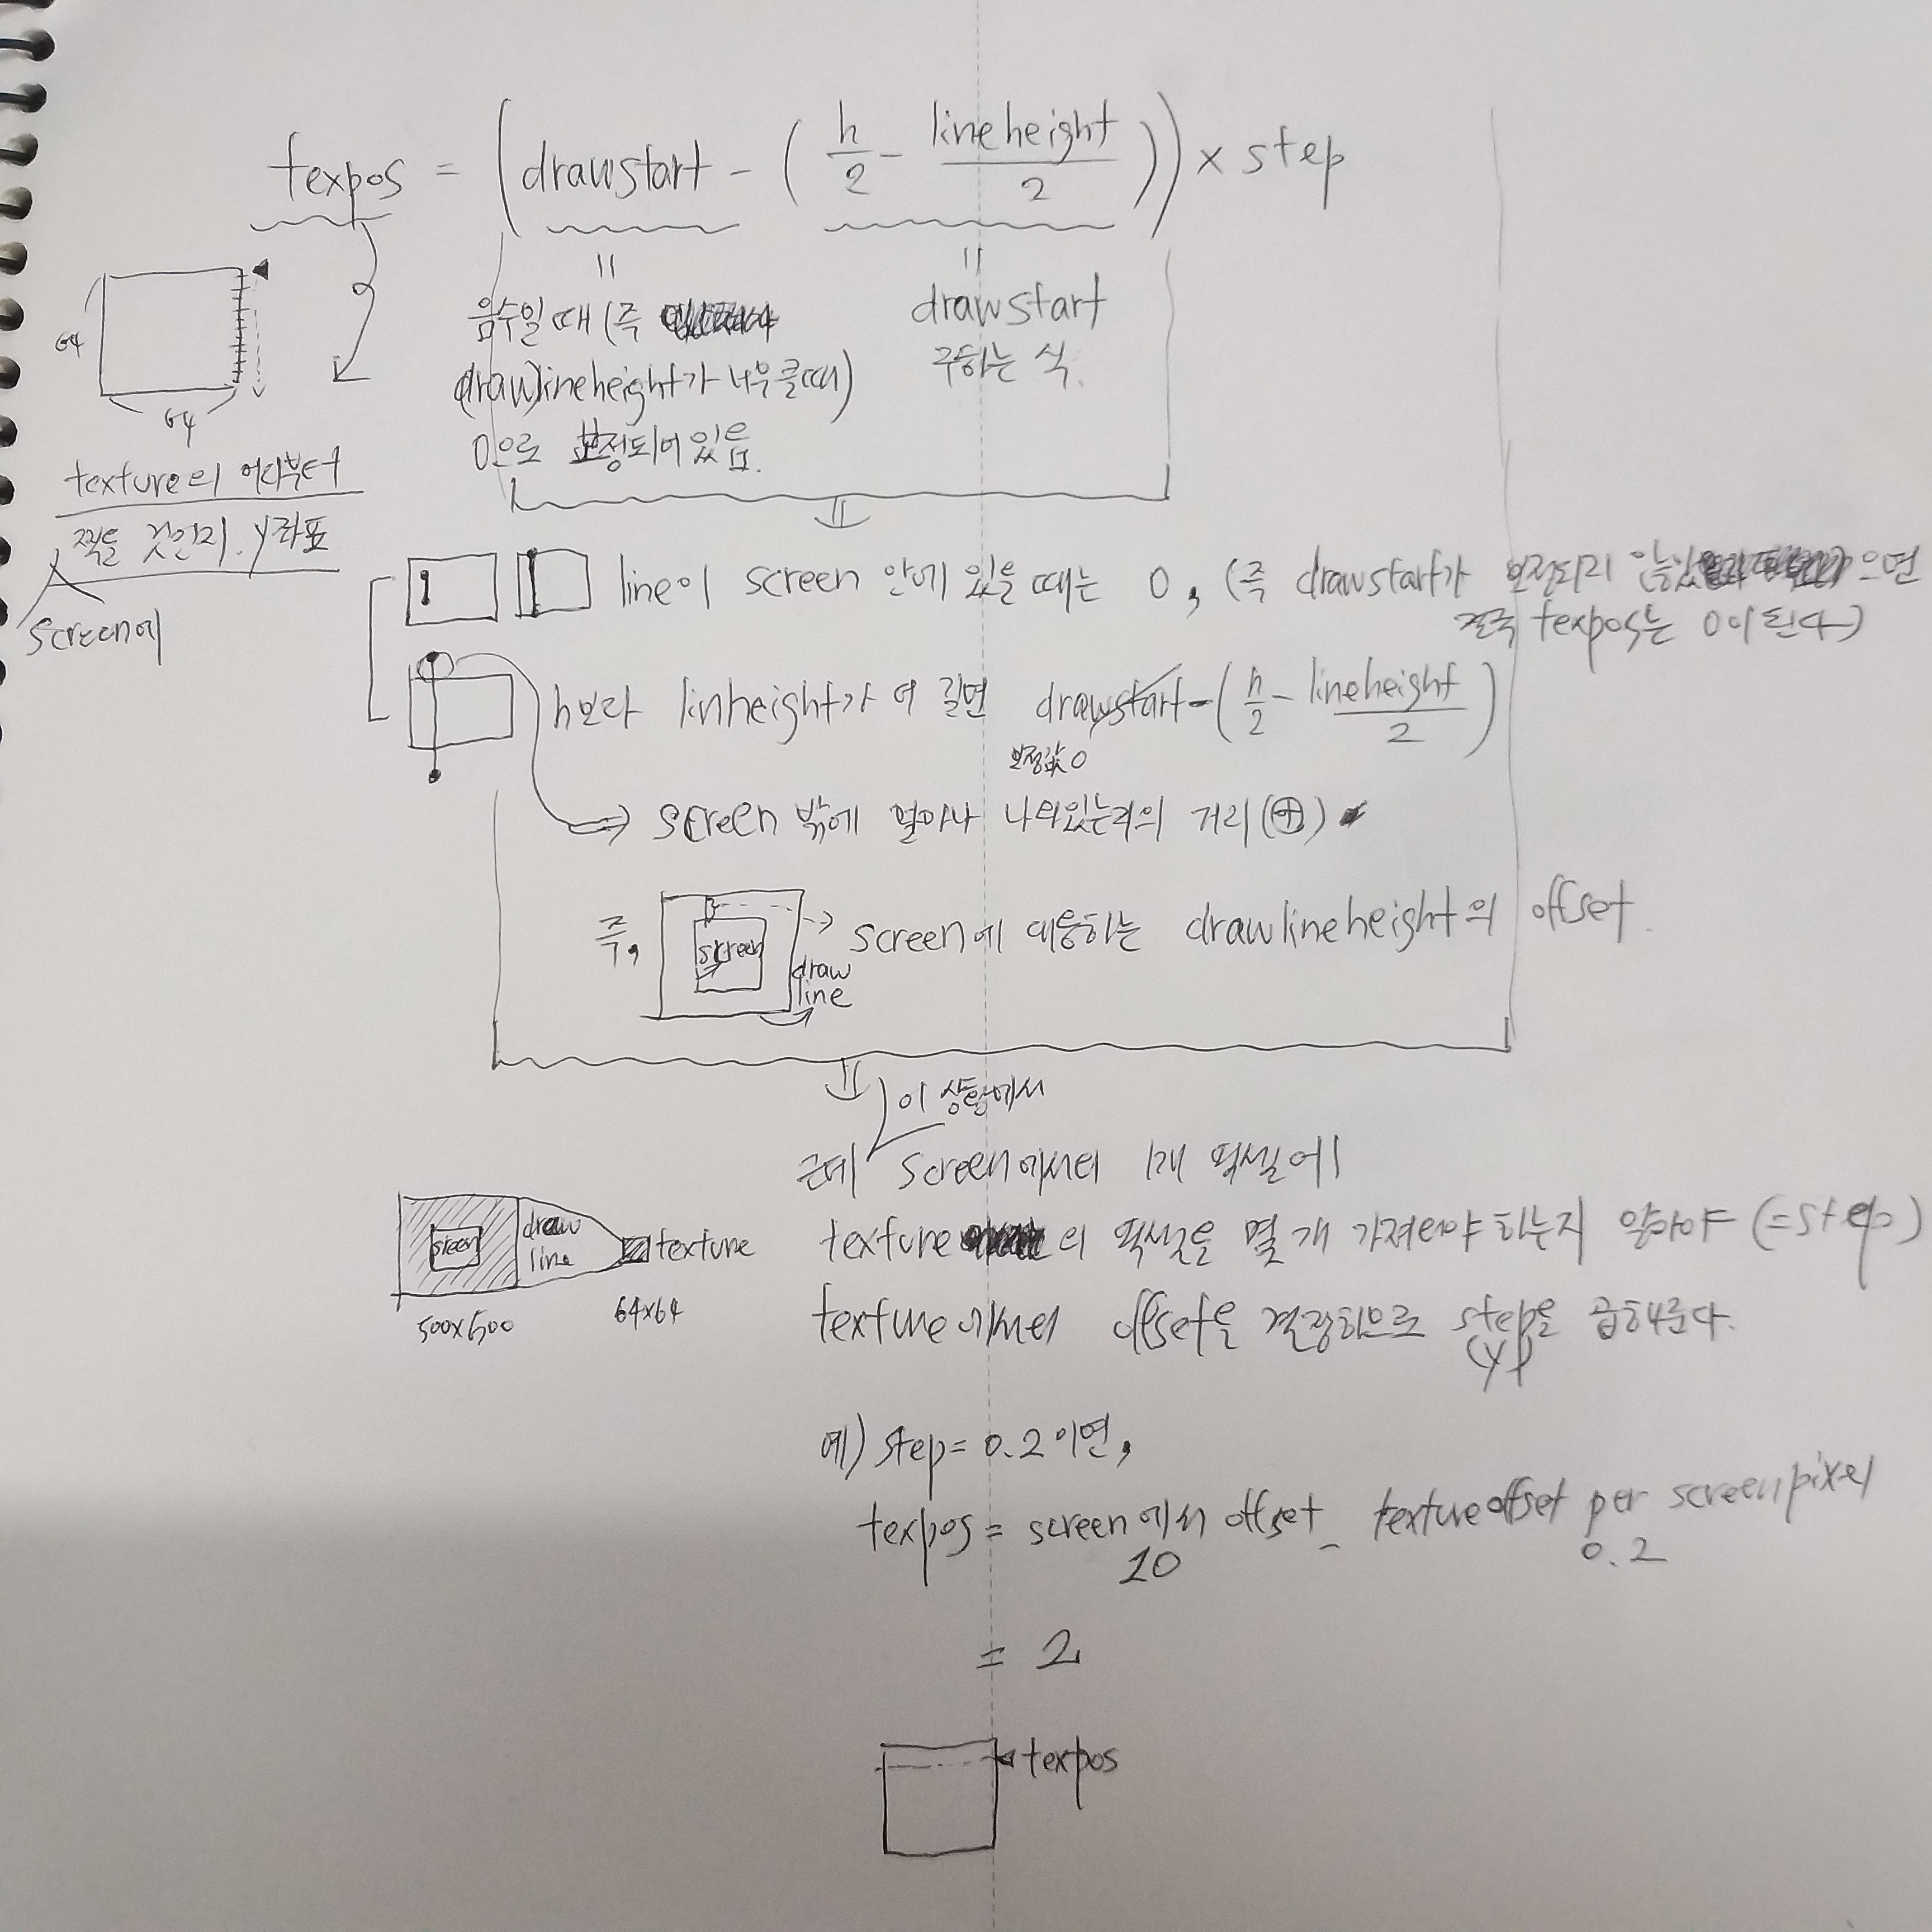 texpos = (drawstart - (h/2 - lineheight/2)) × step
64
64
texture의 어디부터
찍을 것인지. y좌표
screen에
음수일 때 (즉
(draw)lineheight가 너무 클때)
0으로 보정되어 있음.
drawstart
구하는 식.
line이 screen 안에 있을 때는 0, (즉 drawstart가 보정되지 않았으면
결국 texpos는 0이 된다)
h보다 linheight가 더 길면 drawstart - (h/2 - lineheight/2)
보정값 0
⇒ screen 밖에 얼마나 나와있는지의 거리 (⊕)
즉,
screen
draw
line
→ screen에 대응하는 drawlineheight의 offset.
이 상황에서
근데 screen에서의 1개 픽셀에
texture의 픽셀을 몇 개 가져와야 하는지 알아야 (=step)
texture에서의 offset을 결정하므로 step을 곱해준다.
(y)
sreen
draw
line
texture
500x500
64x64
예) step = 0.2 이면,
texpos = screen에서 offset - texture offset per screen pixel
10
0.2
= 2
texpos